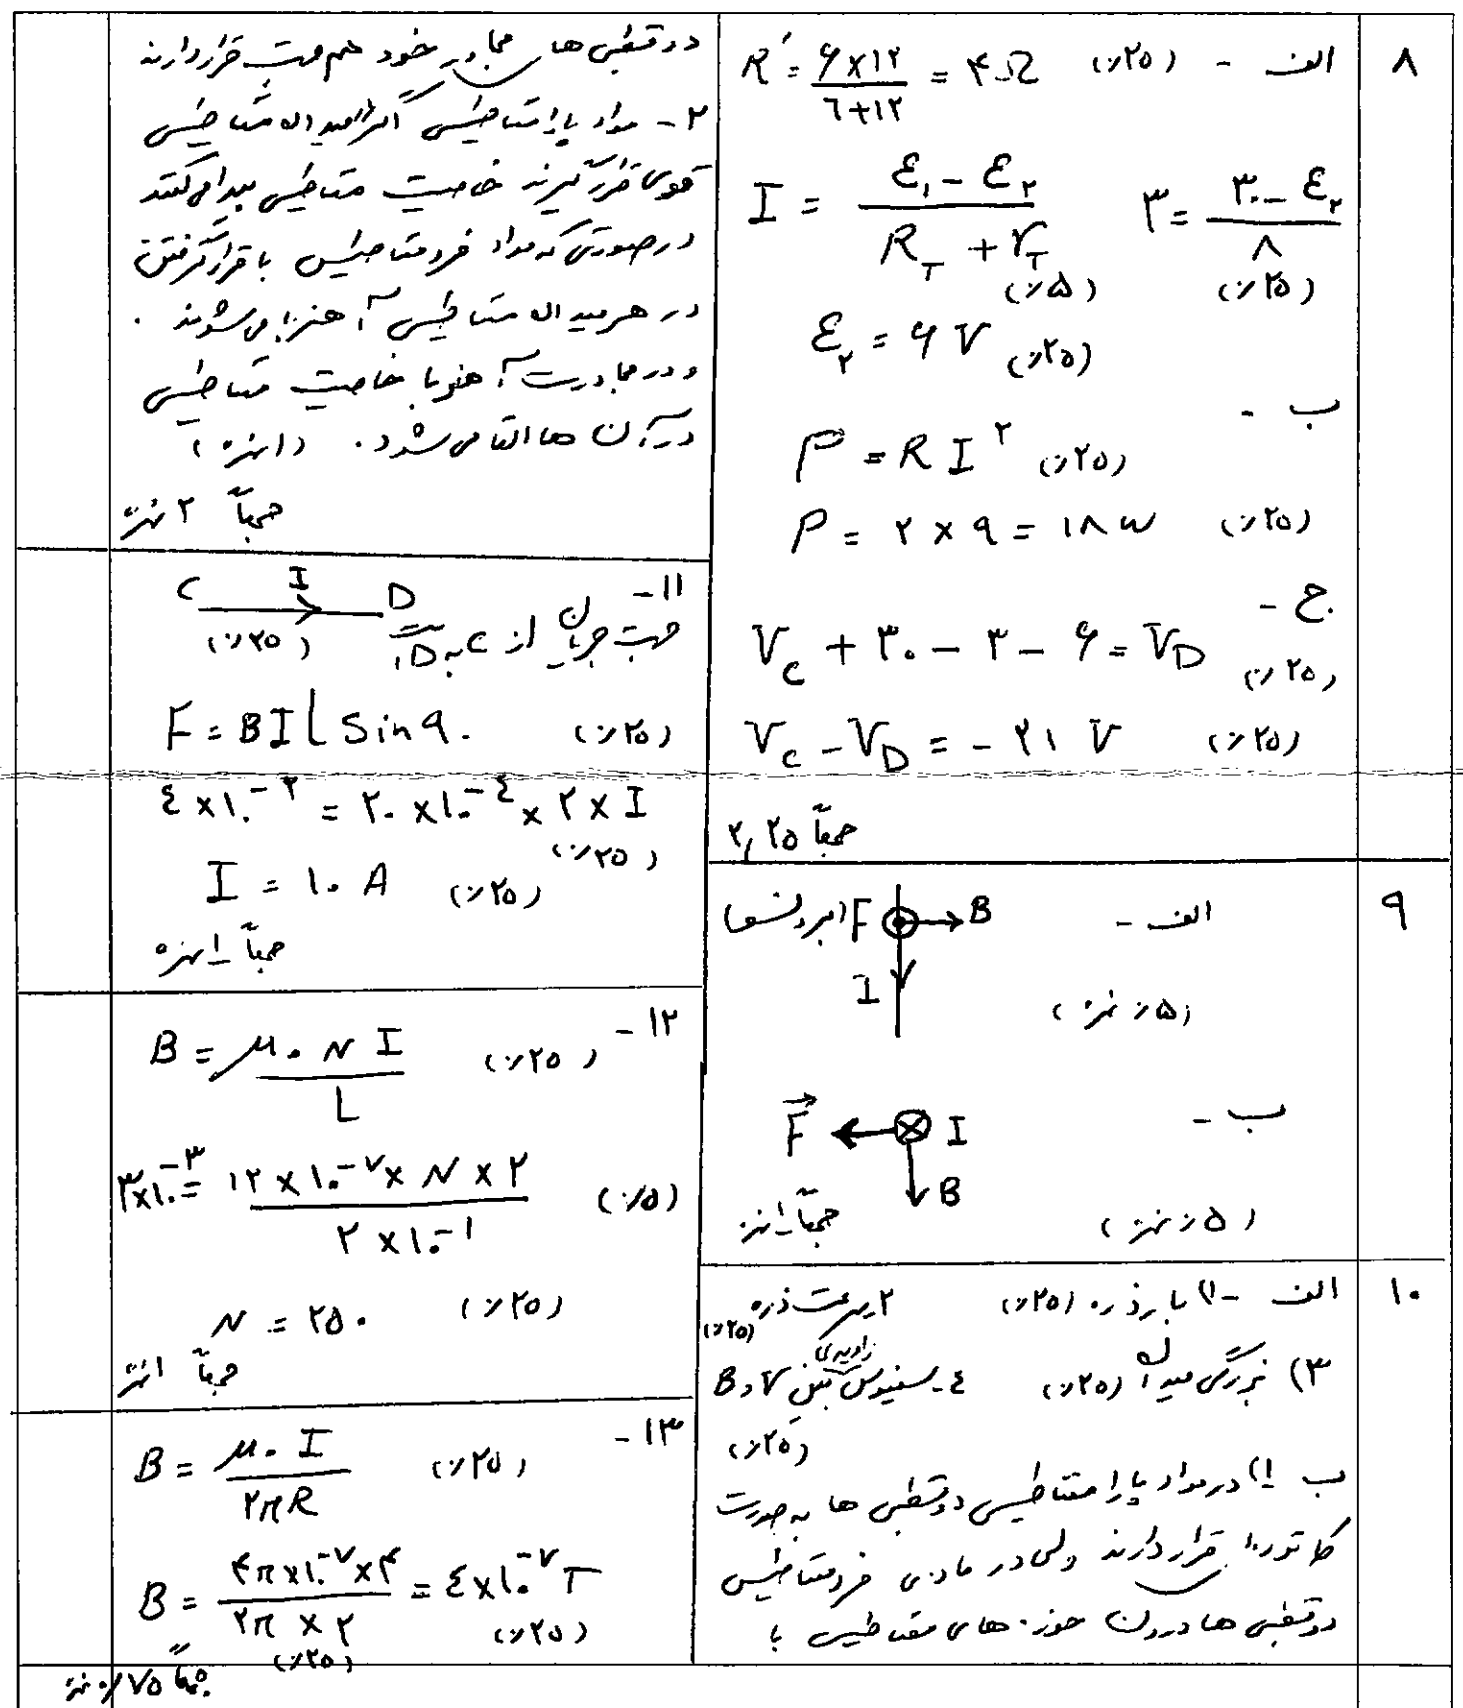 ۸
الف - (۰/۲۵) R' = ۶×۱۲ / ۶+۱۲ = ۴Ω
I = ε₁ - ε₂ / R_T + r_T (۰/۵) ۳ = ۳۰ - ε₂ / ۸ (۰/۲۵)
ε₂ = ۶ V (۰/۲۵)
ب -
P = R I² (۰/۲۵)
P = ۲ × ۹ = ۱۸ w (۰/۲۵)
ج -
V_C + ۳۰ - ۳ - ۶ = V_D (۰/۲۵)
V_C - V_D = - ۲۱ V (۰/۲۵)
جمعاً ۲,۲۵
۹
الف - F (برونسو) B
I
(۰/۵ نمره)
ب - F I
B
(۰/۵ نمره) جمعاً ۱ نمره
۱۰
الف - ۱) بار ذره (۰/۲۵) ۲. سرعت ذره (۰/۲۵)
۳) بزرگی میدان (۰/۲۵) ٤- سینوس زاویه‌ی بین V و B
(۰/۲۵)
ب ۱) در مواد پارامغناطیسی دوقطبی ها به صورت
کاتوره‌ای قرار دارند ولی در ماده‌ی فرومغناطیسی
دوقطبی ها درون حوزه های مغناطیسی با
دوقطبی های مجاور خود هم جهت قرار دارند
۲- مواد پارامغناطیسی اگر در میدان مغناطیسی
قوی قرار گیرند خاصیت مغناطیسی پیدا می کنند
در صورتی که مواد فرومغناطیس با قرار گرفتن
در هر میدان مغناطیسی آهنربا می شوند .
و در مجاورت آهنربا خاصیت مغناطیسی
در آن ها القا می شود . (۱ نمره)
جمعاً ۲ نمره
۱۱-
C I D
(۰/۲۵) جهت جریان از C به D
F = BIL Sin ۹۰ (۰/۲۵)
٤×۱۰⁻² = ۲۰×۱۰⁻⁴ × ۲ × I
(۰/۲۵)
I = ۱۰ A (۰/۲۵)
جمعاً ۱ نمره
۱۲-
B = μ₀ N I / L (۰/۲۵)
۳×۱۰⁻³ = ۱۲×۱۰⁻⁷ × N × ۲ / ۲×۱۰⁻¹ (۰/۵)
N = ۲۵۰ (۰/۲۵)
جمعاً ۱ نمره
۱۳-
B = μ₀ I / ۲πR (۰/۲۵)
B = ۴π×۱۰⁻⁷×۴ / ۲π × ۲ = ٤×۱۰⁻⁷ T
(۰/۲۵) (۰/۲۵)
جمعاً ۰/۷۵ نمره